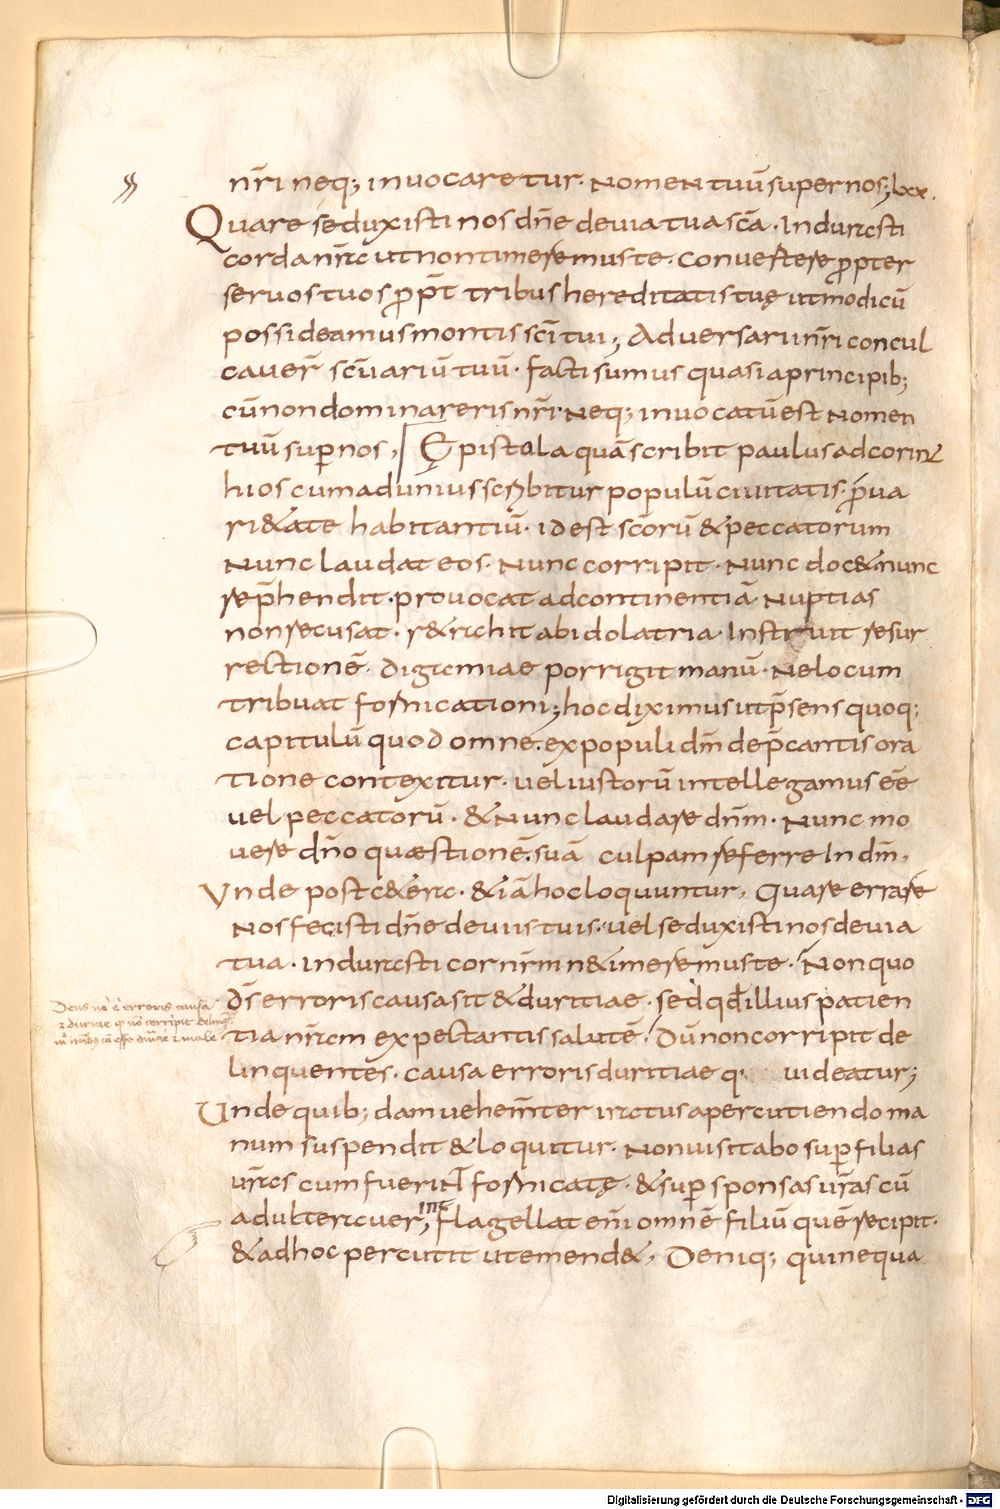 nr̄i neq; inuocaretur. Nomen tuū super nos; lxx.
Quare seduxisti nos dn̄e deuia tua scā. Indurasti
corda nr̄a ut non timeremus te. conuertere ꝓpter
seruos tuos ꝓpt̄ tribus hereditatis tuę ut modicū
possideamus montis sc̄i tui; Aduersarii nr̄i concul
cauer̄ sc̄uariū tuū. facti sumus quasi a principib;
cū non dominareris nr̄i. Neq; inuocatū est nomen
tuū suꝑ nos, Epistola quā scribit paulus ad corint
hios cum ad unius scribitur populū ciuitatis. ꝓ ua
ri&ate habitantiū. id est sc̄orū & peccatorum
Nunc laudat eos. Nunc corripit. Nunc doc& nunc
rep̄hendit. prouocat ad continentiā. Nuptias
non recusat. r&rahit ab idolatria. Instruit resur
rectionē. digamiae porrigit manū. Ne locum
tribuat fornicationi; hoc diximus ut p̄sens quoq;
capitulū quod omne. ex populi dm̄ dep̄cantis ora
tione contexitur. uel iustorū intellegamus ēe
uel peccatorū. & Nunc laudare dnm̄. Nunc mo
uere dn̄o quæstionē. suā culpam referre In dm̄,
Vnde post c&era. & iā hoc loquuntur, Quare errare
Nos fecisti dn̄e de uiis tuis. uel seduxisti nos de uia
tua. indurasti cor nr̄m n& imeremus te. Non quo
ds̄ erroris causa sit & duritiae. sed qđ illius patien
tia nr̄am expectantis salutē. Dū non corripit de
linquentes. causa erroris duritiae q. uideatur;
Unde quib; dam uehem̄ter iratus a percutiendo ma
num suspendit & loquitur. Non uisitabo suꝑ filias
ur̄as cum fuerint fornicatę. & suꝑ sponsas ur̄as cū
adulterauer̄, flagellat em̄ omnē filiū quē recipit.
& ad hoc percutit ut emend&, Deniq; qui nequa
Deus nō ē erroris causa